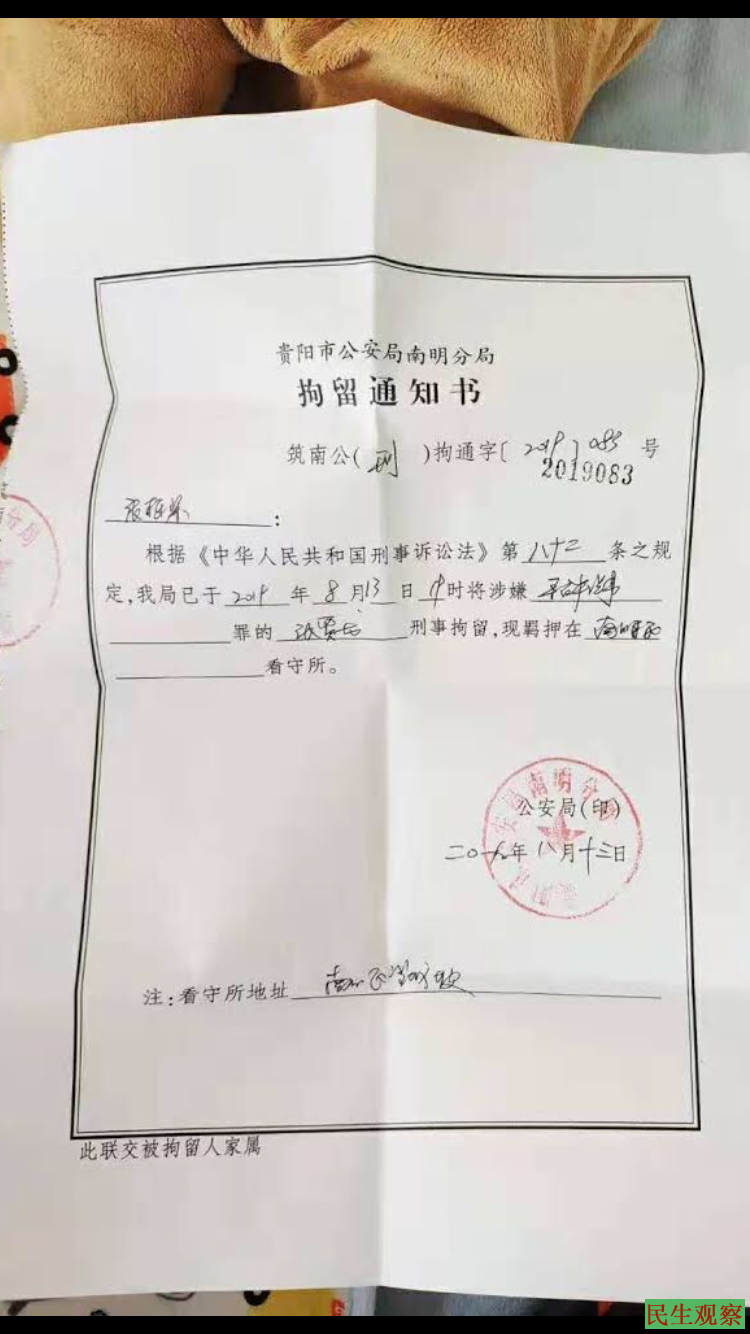 贵阳市公安局南明分局
拘留通知书
筑南公(刑)拘通字[2019]083号
2019083
:
根据《中华人民共和国刑事诉讼法》第八十二条之规
定,我局已于2019年8月13日 时将涉嫌
罪的 刑事拘留,现羁押在南明区
看守所。
公安局南明分局
公安局(印)
二〇一九年八月十三日
注:看守所地址
此联交被拘留人家属
民生观察